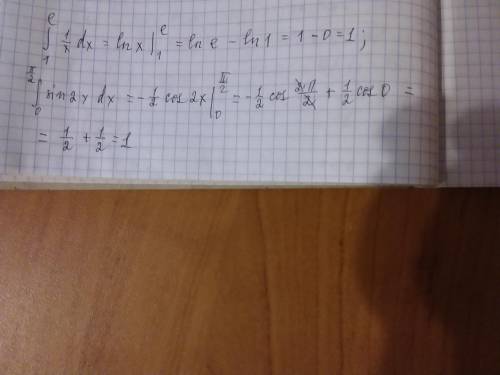 ∫₁ᵉ 1/x dx = ln x |₁ᵉ = ln e − ln 1 = 1 − 0 = 1;
∫₀^(π/2) sin 2x dx = −1/2 cos 2x |₀^(π/2) = −1/2 cos 2π/2 + 1/2 cos 0 =
= 1/2 + 1/2 = 1